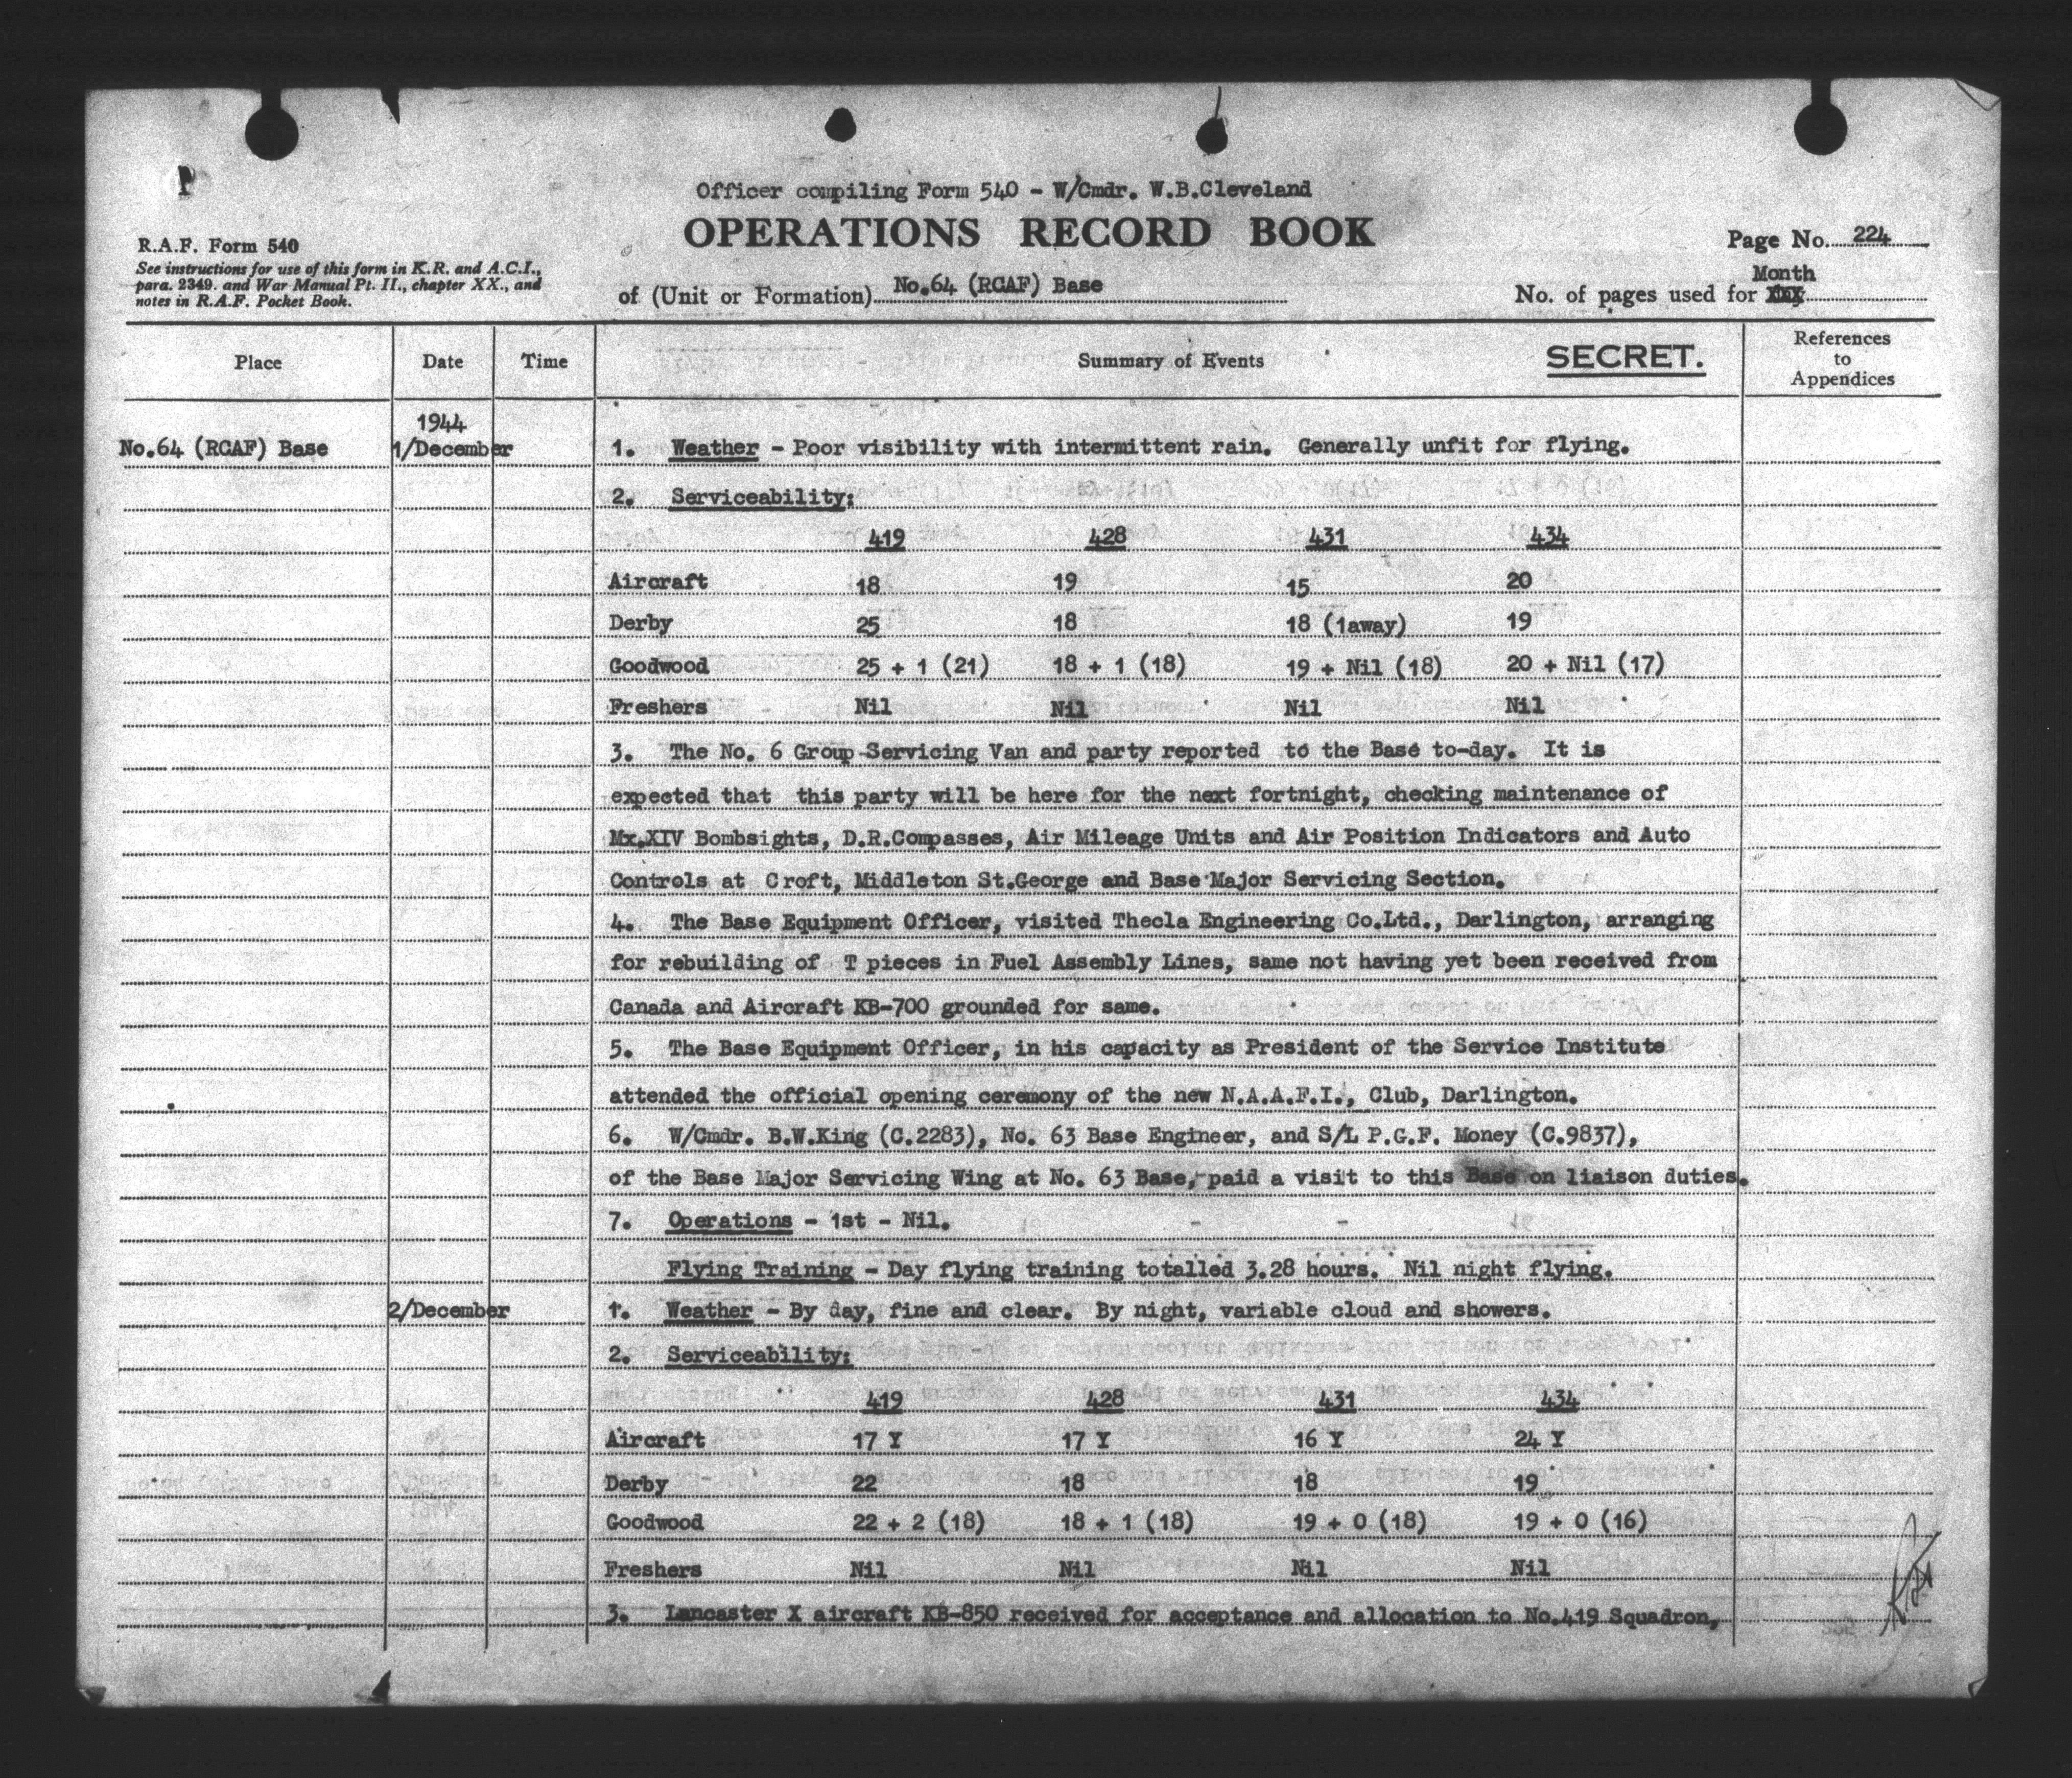 Officer compiling Form 540 - W/Cmdr. W.B.Cleveland
OPERATIONS RECORD BOOK
R.A.F. Form 540
See instructions for use of this form in K.R. and A.C.I.,
para. 2349. and War Manual Pt. II., chapter XX., and
notes in R.A.F. Pocket Book.
Page No. 224
of (Unit or Formation) No.64 (RCAF) Base
Month
No. of pages used for
Place Date Time Summary of Events SECRET. References to Appendices
1944
No.64 (RCAF) Base 1/December 1. Weather - Poor visibility with intermittent rain. Generally unfit for flying.
2. Serviceability:
419 428 431 434
Aircraft 18 19 15 20
Derby 25 18 18 (1away) 19
Goodwood 25 + 1 (21) 18 + 1 (18) 19 + Nil (18) 20 + Nil (17)
Freshers Nil Nil Nil Nil
3. The No. 6 Group Servicing Van and party reported to the Base to-day. It is
expected that this party will be here for the next fortnight, checking maintenance of
Mx.XIV Bombsights, D.R.Compasses, Air Mileage Units and Air Position Indicators and Auto
Controls at Croft, Middleton St.George and Base Major Servicing Section.
4. The Base Equipment Officer, visited Thecla Engineering Co.Ltd., Darlington, arranging
for rebuilding of T pieces in Fuel Assembly Lines, same not having yet been received from
Canada and Aircraft KB-700 grounded for same.
5. The Base Equipment Officer, in his capacity as President of the Service Institute
attended the official opening ceremony of the new N.A.A.F.I., Club, Darlington.
6. W/Cmdr. B.W.King (C.2283), No. 63 Base Engineer, and S/L P.G.F. Money (C.9837),
of the Base Major Servicing Wing at No. 63 Base, paid a visit to this Base on liaison duties.
7. Operations - 1st - Nil.
Flying Training - Day flying training totalled 3.28 hours. Nil night flying.
2/December 1. Weather - By day, fine and clear. By night, variable cloud and showers.
2. Serviceability:
419 428 431 434
Aircraft 17 Y 17 Y 16 Y 24 Y
Derby 22 18 18 19
Goodwood 22 + 2 (18) 18 + 1 (18) 19 + 0 (18) 19 + 0 (16)
Freshers Nil Nil Nil Nil
3. Lancaster X aircraft KB-850 received for acceptance and allocation to No.419 Squadron,